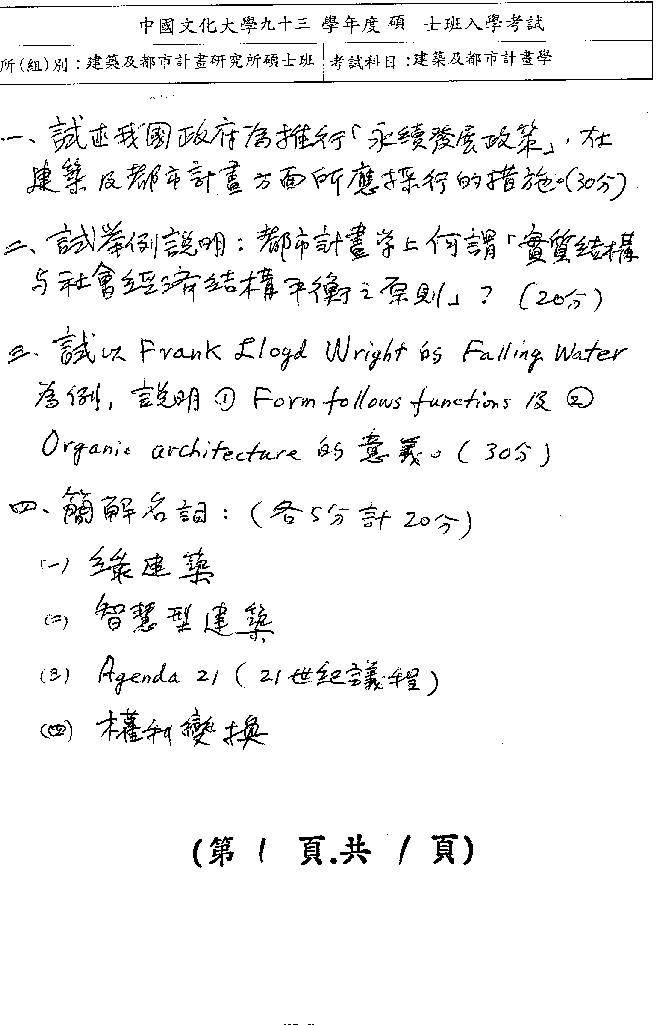 中國文化大學九十三 學年度 碩 士班入學考試
所(組)別：建築及都市計畫研究所碩士班 考試科目：建築及都市計畫學
一、試述我國政府為推行「永續發展政策」，在
建築及都市計畫方面所應採行的措施。(30分)
二、試舉例說明：都市計畫学上何謂「實質結構
与社會經濟結構平衡之原則」？(20分)
三、試以 Frank Lloyd Wright 的 Falling Water
為例，說明 ① Form follows functions 及 ②
Organic architecture 的意義。(30分)
四、簡解名詞：(各5分計20分)
(一) 綠建築
(二) 智慧型建築
(三) Agenda 21 (21世紀議程)
(四) 權利變換
(第 1 頁.共 1 頁)